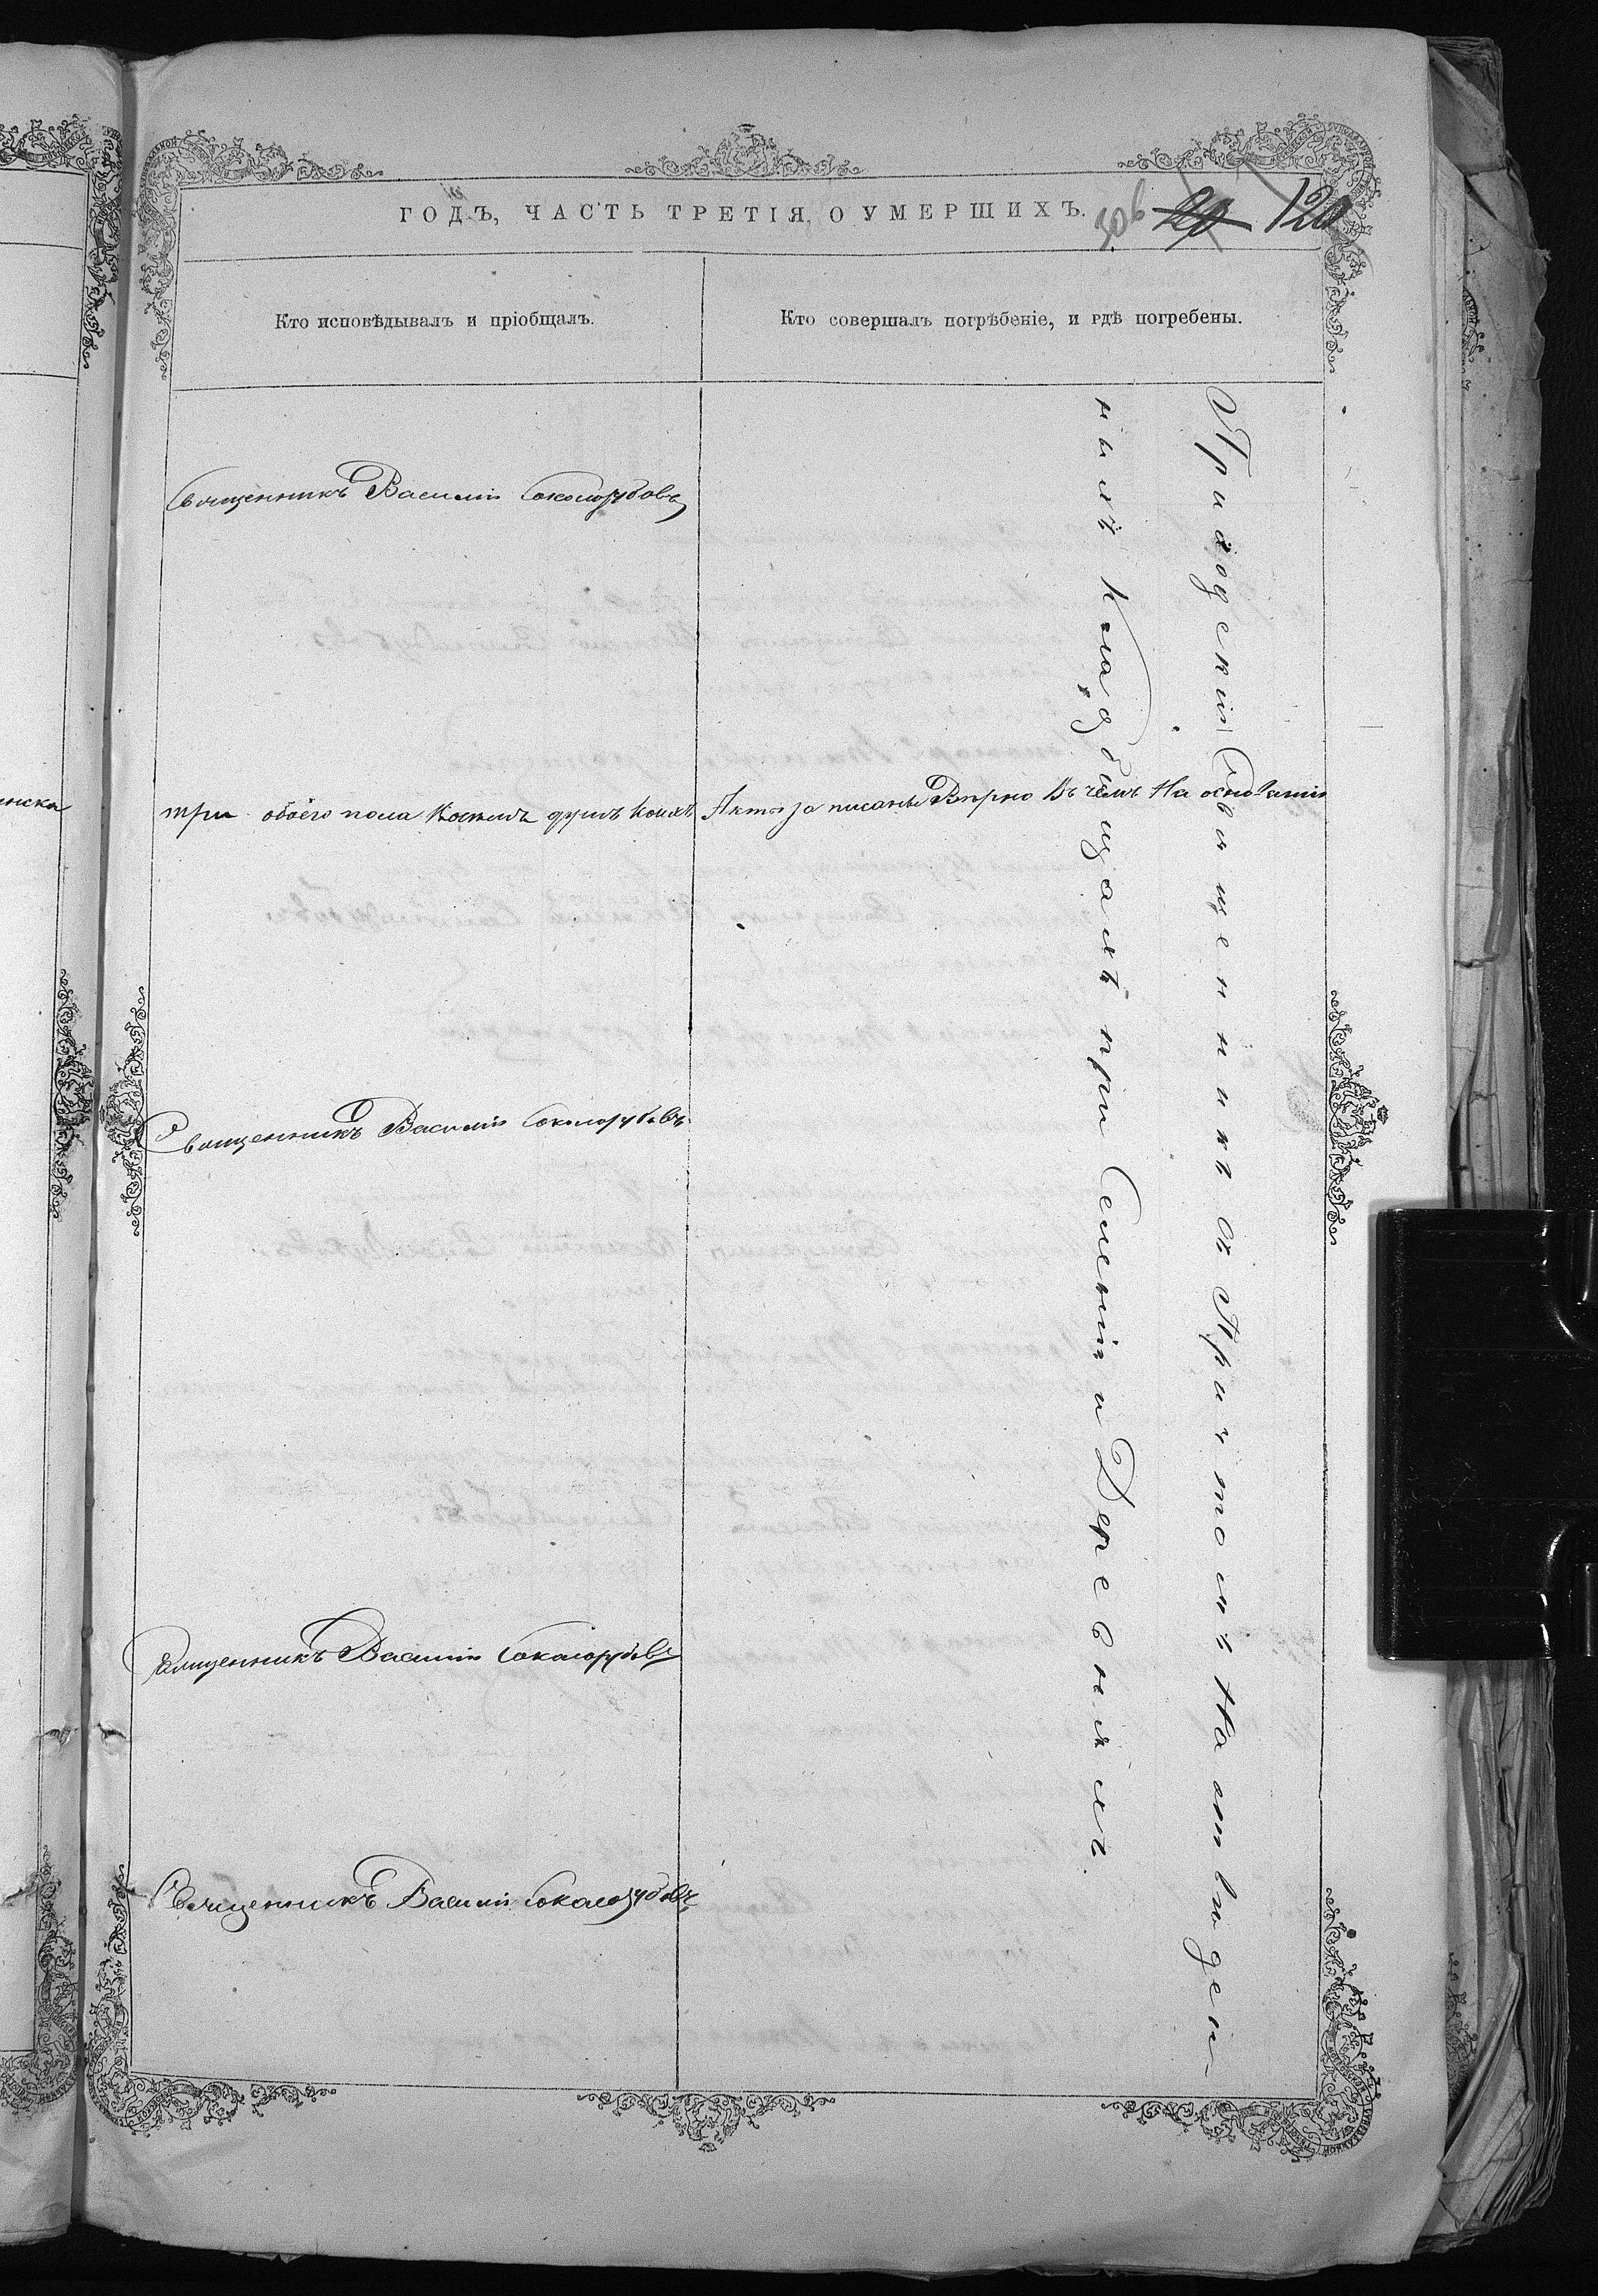 ГОДЪ, ЧАСТЬ ТРЕТІЯ, О УМЕРШИХЪ.
306 20 120
Кто исповѣдывалъ и пріобщалъ.
Кто совершалъ погрѣбеніе, и гдѣ погребены.
Священникъ Василій Соколорубовъ
три обоего пола душъ коихъ Акты записаны Вѣрно Въ чемъ На основаніи
Священникъ Василій Соколорубовъ
Священникъ Василій Соколорубовъ
Священникъ Василій Соколорубовъ
Приходскій Священникъ съ Причтомъ На отведен-
ныхъ Кладбищахъ при Селеніи и Деревняхъ